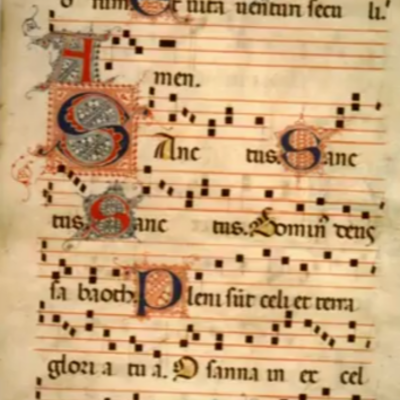 o rum Et uita uenturi secu li.
Amen.
Sanc tus. Sanc
tus Sanc tus. Dominˀ deus
sa baoth. Pleni sūt celi et terra
glori a tu a. O sanna in ex cel